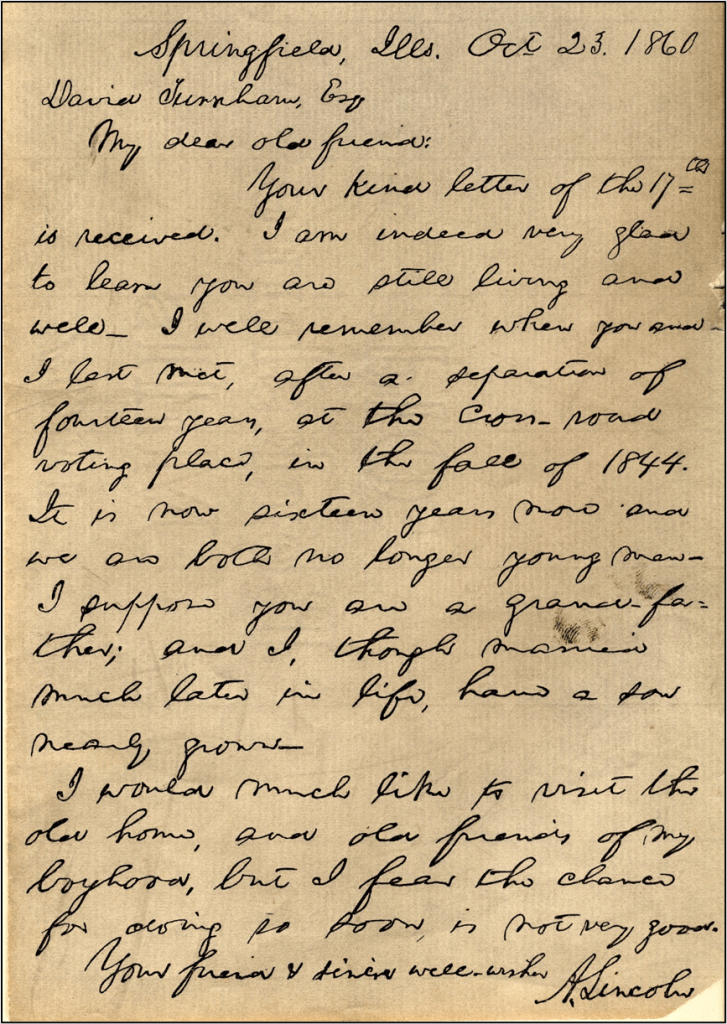 Springfield, Ills. Oct 23. 1860
David Turnham, Esq
My dear old friend:
Your kind letter of the 17th
is received. I am indeed very glad
to learn you are still living and
well— I well remember when you and
I last met, after a separation of
fourteen years, at the Cross-road
voting place, in the fall of 1844.
It is now sixteen years more and
we are both no longer young men—
I suppose you are a grand-fa=
ther; and I, though married
much later in life, have a son
nearly grown—
I would much like to visit the
old home, and old friends of my
boyhood, but I fear the chance
for doing so soon, is not very good.
Your friend & sincere well-wisher
A. Lincoln